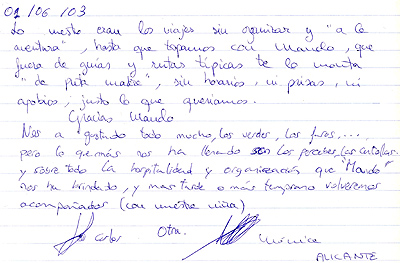 01/06/03
Lo nuestro eran los viajes sin organizar y "a la
aventura", hasta que topamos con Mando, que
fuera de guías y rutas típicas te lo monta
"de puta madre", sin horarios, ni prisas, ni
agobios, justo lo que queríamos.
Gracias Mando
Nos a gustado todo mucho, los verdes, los
pero lo que más nos ha llenado son los percebes, las
y sobre todo la hospitalidad y organización que "Mando"
nos ha brindado, y mas tarde o más temprano volveremos
acompañados (con nuestra niña)
Carlos Otra. Mónica
ALICANTE